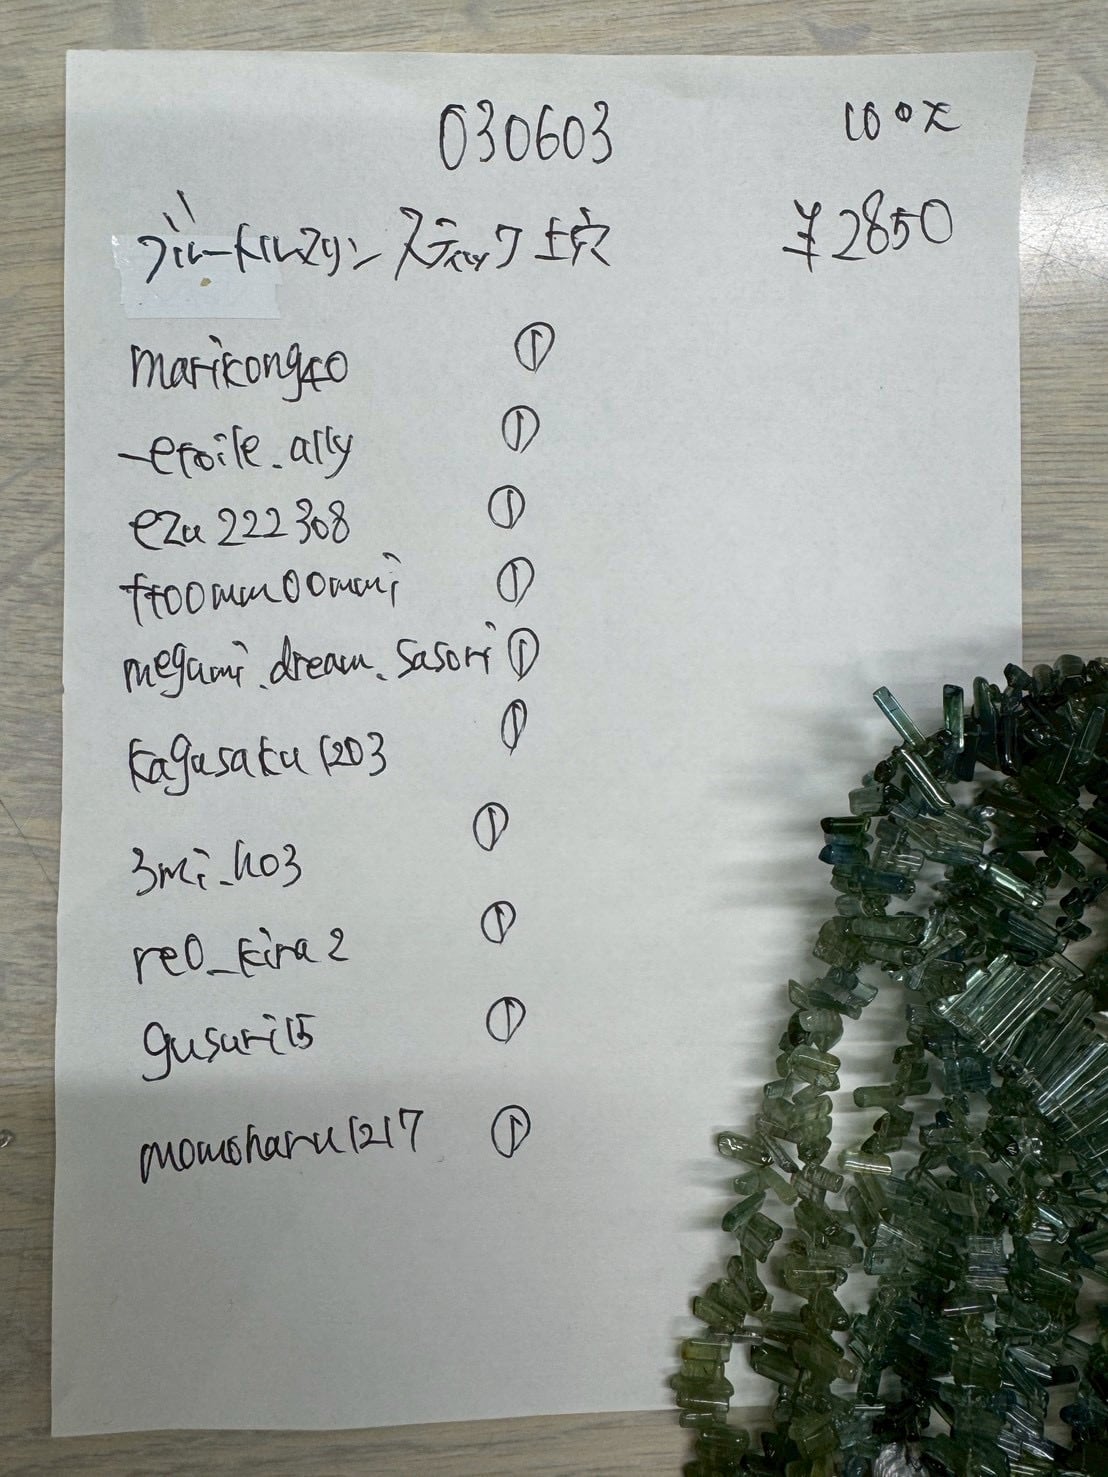 030603 100×
ブルートルマリン スティック 上穴 ¥2850
marikong40 ①
_etoile.ally ①
ezu222308 ①
tt00mm00mmi ①
megumi.dream.sasori ①
kagusaku1203 ①
3mi_h03 ①
re0_kira2 ①
gusuri15 ①
momoharu1217 ①